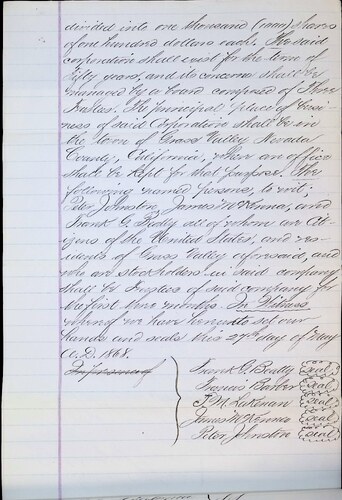 divided into one thousand (1000) shares
of one hundred dollars each. The said
corporation shall exist for the term of
fifty years, and its concerns shall be
managed by a board composed of three
Trustees. Its principal place of busi
ness of said Corporation shall be in
the town of Grass Valley Nevada
County, California, where an office
shall be kept for that purpose. The
following named persons, to wit;
Peter Johnston, James McKenna, and
Frank G. Beatty all of whom are Citi
zens of the United States, and res
idents of Grass Valley aforesaid, and
who are stockholders in said company
shall be Trustees of said company for
the first three months. In Witness
whereof we have hereunto set our
hands and seals this 27th day of May
A.D. 1868.
In presence of
Frank G. Beatty seal
Francis Barker seal
J. M. Lakenan seal
James McKenna seal
Peter Johnston seal